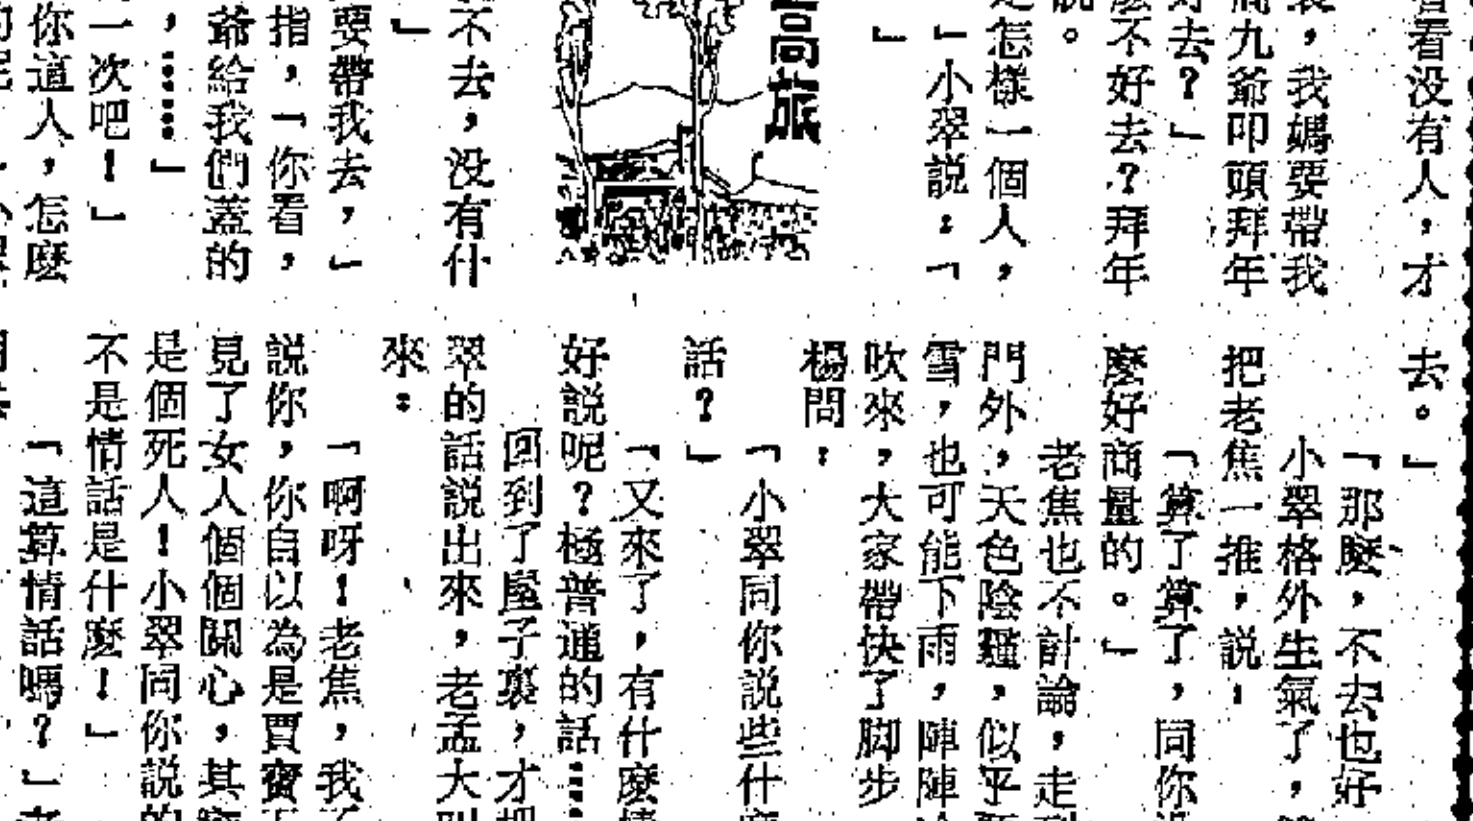 看没有人，才
裏，我媽要帶我
九爺叩頭拜年
去？」
麼不好去？拜年
說。
怎樣一個人，
」小翠説：「
」
高旅
不去，没有什
」
要帶我去，」
指，「你看，
爺給我們蓋的
，……」
一次吧！」
你道人，怎麽
去。」
「那麽，不去也好
小翠格外生氣了，
把老焦一推，説：
「算了算了，同你
麽好商量的。」
老焦也不討論，走
門外，天色陰霾，似乎
雪，也可能下雨，陣陣
吹來，大家帶快了脚步
楊問：
「小翠同你説些什
話？」
「又來了，有什麽
好説呢？極普通的話……
回到了屋子裏，才
翠的話説出來，老孟大
來：
「啊呀！老焦，我
説你，你自以為是賈寶
見了女人個個關心，其
是個死人！小翠同你説的
不是情話是什麽！」
「這算情話嗎？」